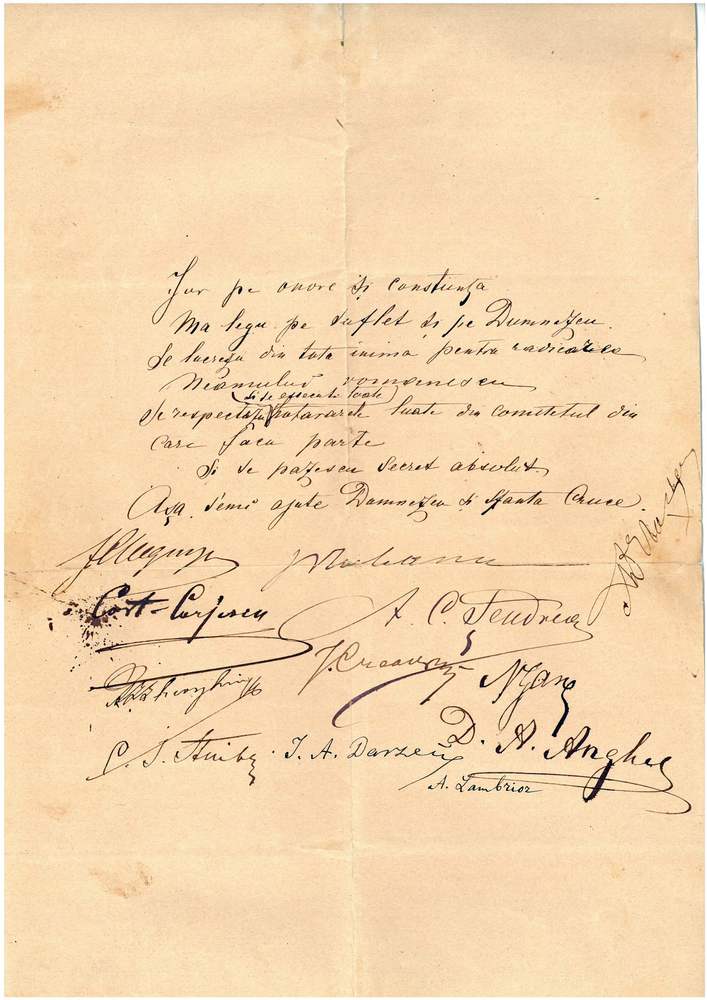 Jur pe onore și constiința
Ma legu pe suflet și pe Dumnezeu.
Se lucrezu din tota inima pentru radicarea
Neamului romanescu
si se essecute toate
Se respectezu hotararele luate din comitetul din
care facu parte
Si se pazescu secret absolut.
Așa semi ajute Dumnezeu si Sfanta Cruce.
Const-Corjescu
A. C.
J. Creangă
C. J.
J. A. Darzeu
D. A. Anghel
A. Lambrior